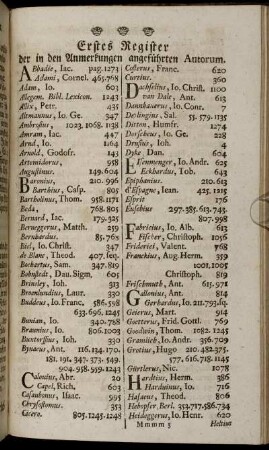 Erstes Register
der in den Anmerkungen angeführten Autorum.
Abbadie, Iac. pag. 1273
Adami, Cornel. 465.768
Adam, Io. 603
Allegem. Bibl. Lexicon. 1243
Allix, Petr. 435
Altmannus, Io. Ge. 347
Ambrosius 1023.1068.1138
Amram, Iac. 447
Arnd, Io. 1164
Arnold, Godofr. 143
Artemidorus, 958
Augustinus. 149.604
Baronius, 210.996
Barthius, Casp. 805
Bartholinus, Thom. 958.1171
Beda, 768.805
Bernard, Iac. 179.325
Berneggerus, Matth. 255
Bernhardus. 85.761
Biel, Io. Christ. 347
de Blanc, Theod. 407.
Bochartus, Sam. 347.819
Bohnstedt, Dav. Sigm. 605
Brinsley, Ioh. 313
Bromlundius, Laur. 330
Buddeus, Io. Franc, 586.598
633.696.1245
Bunian, Io. 340.788
Braunius, Io. 806.1003
Buxtorfius, Ioh. 330
Bynaeus, Ant. 116.134.170.
181.191.347.573.549.
904.958.959.1243
Calendius, Abr. 20
Capel, Rich. 603
Casaubonus, Isaac, 595
Chrysostomus. 353
Cicero. 805.1245.1249
Costerus, Franc. 620
Curtius. 360
Dachselius, Io. Christ. 1100
van Dale, Ant. 613
Dannhauerus, Io. Conr. 7
Deylingius, Sal. 55.579.1135
Ditton, Humfr. 1274
Dorscheus, Io. Ge. 228
Drusius, Ioh. 4
Dyke Dan. 604
Eisenmenger, Io. Andr. 625
Eckhardus, Tob. 643
Epiphanius. 210.613
d'Espagne, Iean. 425.1105
Esprit 176
Eusebius 297.385.613.745.
807.998
Fabricius, Io. Alb. 613
Fischer, Christoph. 1056
Friderici, Valent. 768
Franckius, Aug. Herm. 359
1001.1005
Christoph. 819
Frischmuth, Ant. 615.971
Gallonius, Ant. 814
Gerhardus, Io. 211.795.
Geierus, Mart. 914
Goetterus, Frid. Gottl. 769
Goodwin, Thom. 1082.1245
Gramlich, Io. Andr. 356.709
Grotius, Hugo 210.482.375.
577.616.718.1145
Gürtlerus, Nic. 1078
Hardtius, Herm. 386
Harduinus, Io. 716
Hasaeus, Theod. 806
Hebopfer, Bersl. 353.717.586.734
Heideggerus, Io. Henr. 620
Mmmm 3 Heltius